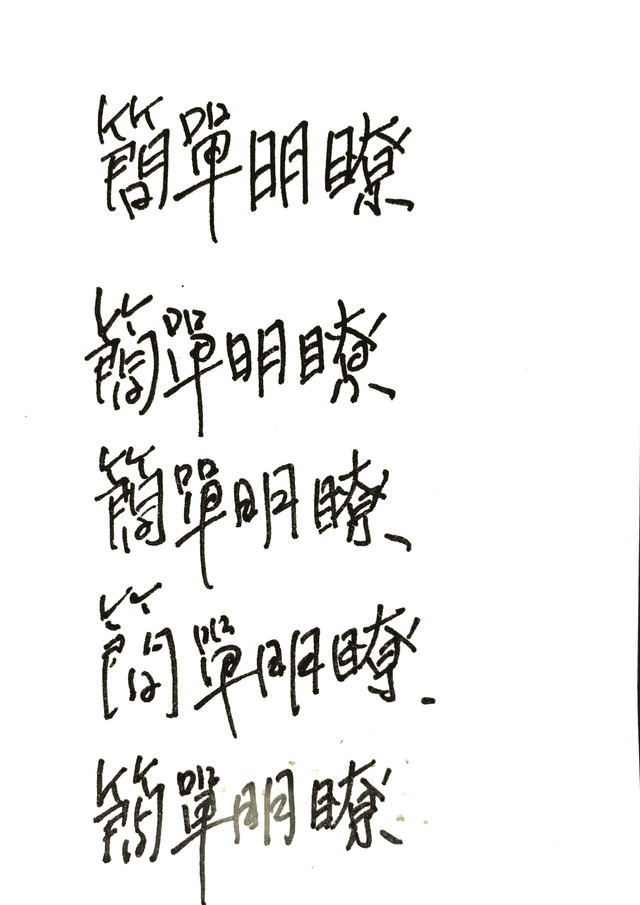 簡單明瞭
簡單明瞭
簡單明瞭
簡單明瞭
簡單明瞭